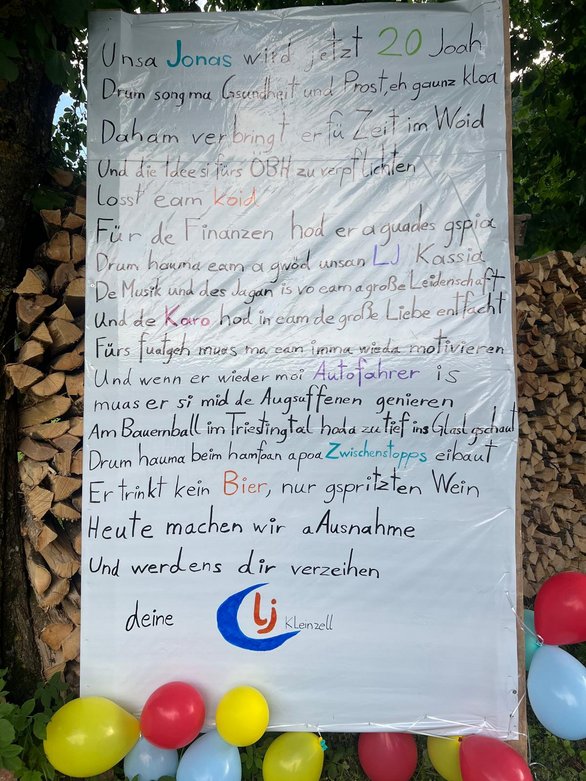 Unsa Jonas wird jetzt 20 Joah
Drum song ma Gsundheit und Prost, eh gaunz kloa
Daham verbringt er fü Zeit im Woid
Und die Idee si fürs ÖBH zu verpflichten
losst eam koid
Für de Finanzen hod er a guades gspia
Drum hauma eam a gwöd unsan LJ Kassia
De Musik und des Jagan is vo eam a große Leidenschaft
Und de Karo hod in eam de große Liebe entfacht
Fürs fuatgeh muas ma eam imma wieda motivieren
Und wenn er wieder moi Autofahrer is
muas er si mid de Augsuffenen genieren
Am Bauernball im Triestingtal hod a zu tief ins Glasl gschaut
Drum hauma beim hamfoan a poa Zwischenstopps eibaut
Er trinkt kein Bier, nur gspritzten Wein
Heute machen wir a Ausnahme
Und werdens dir verzeihen
deine lj Kleinzell